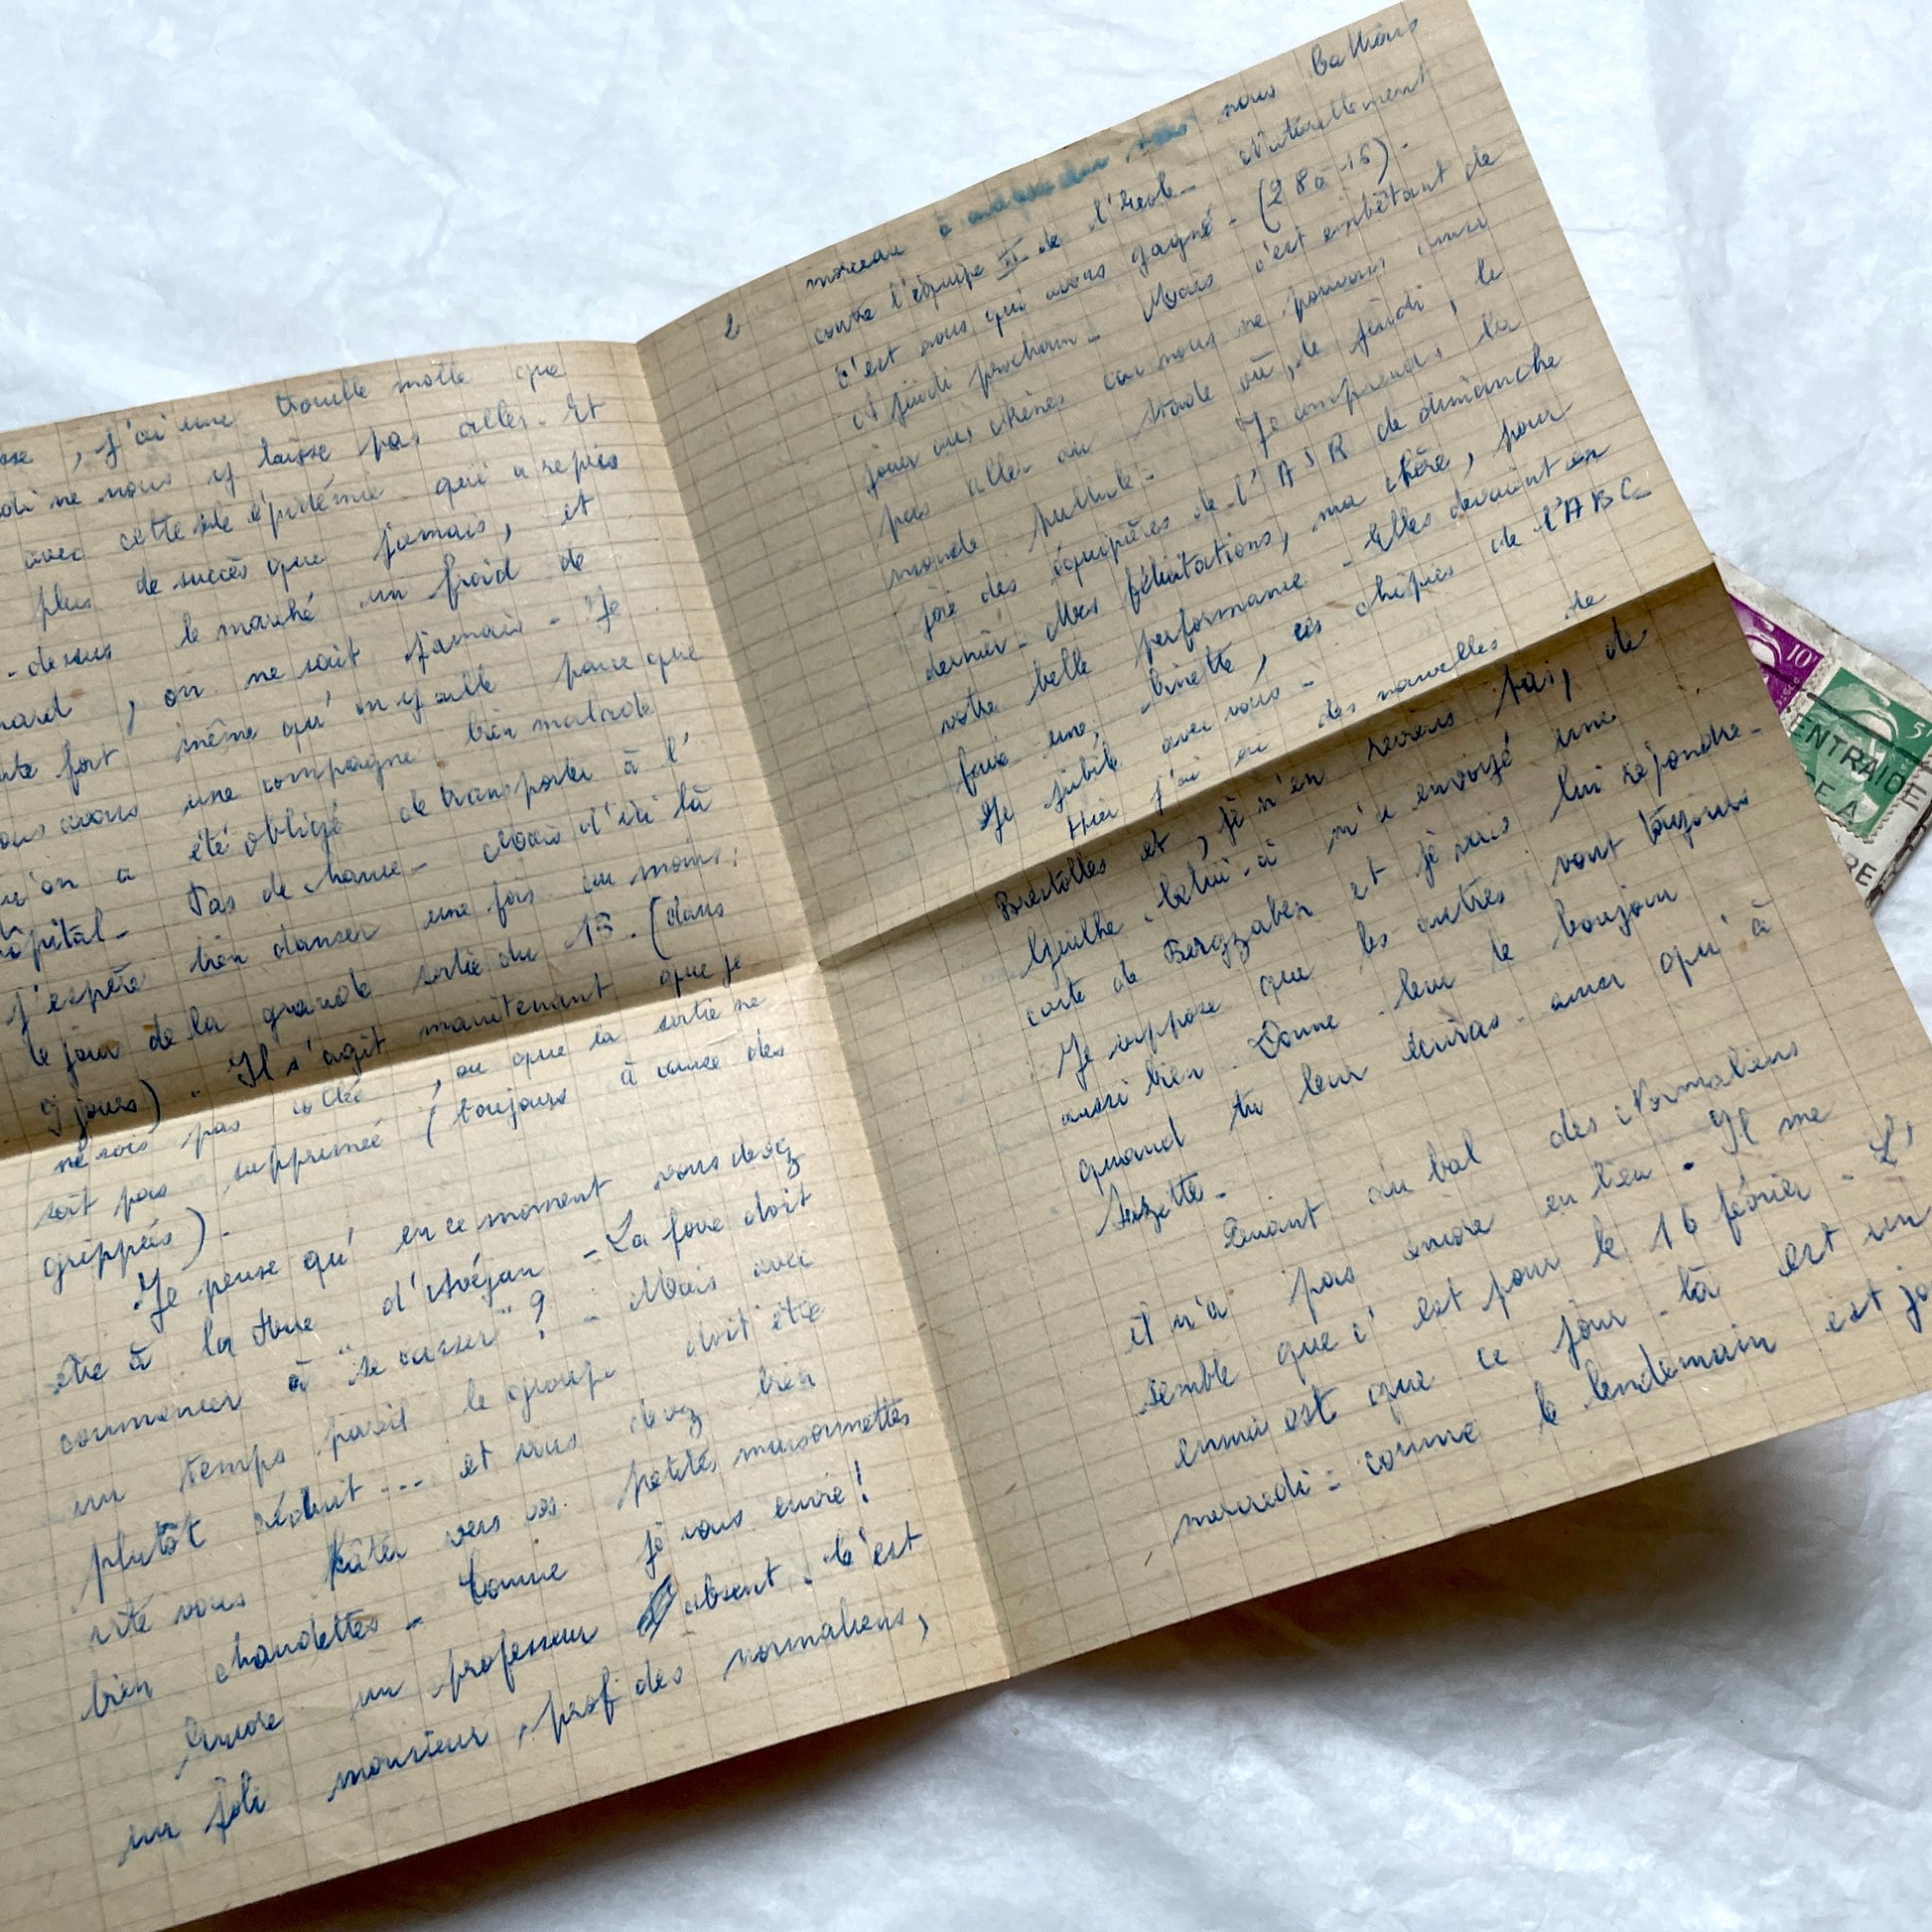 , j'ai une trouille molle que
ne nous y laisse pas aller. Et
avec cette sale épidémie qui a repris
plus de succès que jamais, et
-dessus le marché un froid de
nard, on ne sait jamais - Je
fort même qu'on y aille parce que
nous avons une compagne bien malade
qu'on a été obligé de transporter à l'
hôpital - Pas de chance - Mais d'ici là
j'espère bien danser une fois au moins,
le jour de la grande sortie du 15. (dans
9 jours) - Il s'agit maintenant que je
ne sois pas collée, ou que la sortie ne
soit pas supprimée (toujours à cause des
grippées) -
Je pense qu'en ce moment vous devez
être à la d'Avéjan - La foire doit
commencer à "se casser"? - Mais avec
un temps pareil le groupe doit être
plutôt réduit --- et vous devez bien
vite vous hâter vers vos petites maisonnettes
bien chaudettes - Comme je vous envie!
Encore un professeur absent - C'est
un joli monsieur, prof des normaliens,
2
morceau nous battions
contre l'équipe II de l'école - Naturellement
c'est nous qui avons gagné - (28 à 16) -
et jeudi prochain - Mais c'est embêtant de
jouer aux chênes car nous ne pouvons
pas aller au stade où, le jeudi, le
monde pullule - Je comprends la
joie des équipières de l'ASR de dimanche
dernier - Mes félicitations, ma chère, pour
votre belle performance - Elles devaient en
faire une, binette, ces chipies de l'ABC -
Je jubile avec vous -
Hier j'ai eu des nouvelles de
et, je n'en reviens pas, de
Guilhe. Celui-ci m'a envoyé une
carte de Bergzaben et je vais lui répondre -
Je suppose que les autres vont toujours
aussi bien - Donne-leur le bonjour
quand tu leur écriras - ainsi qu'à
Suzette -
Quant au bal des Normaliens
il n'a pas encore eu lieu - Il me
semble que c'est pour le 16 février - L'
ennui est que ce jour-là est un
mercredi - comme le lendemain est
10
5
ENTRAIDE